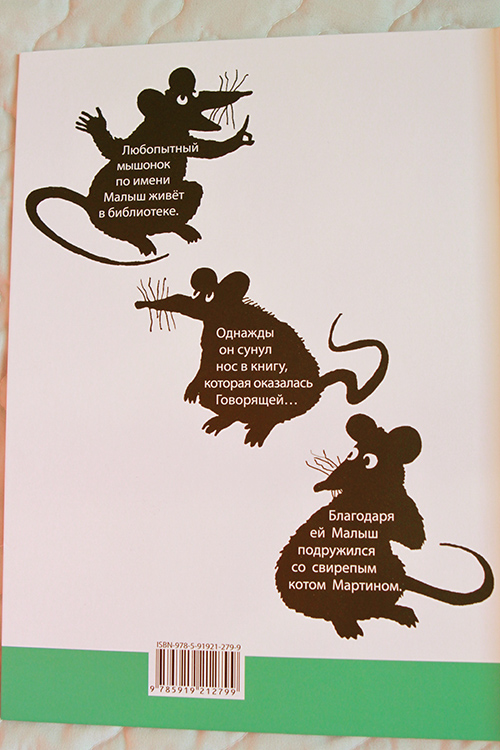 Любопытный
мышонок
по имени
Малыш живёт
в библиотеке.
Однажды
он сунул
нос в книгу,
которая оказалась
Говорящей...
Благодаря
ей Малыш
подружился
со свирепым
котом Мартином.
ISBN-978-5-91921-279-9
9 785919 212799